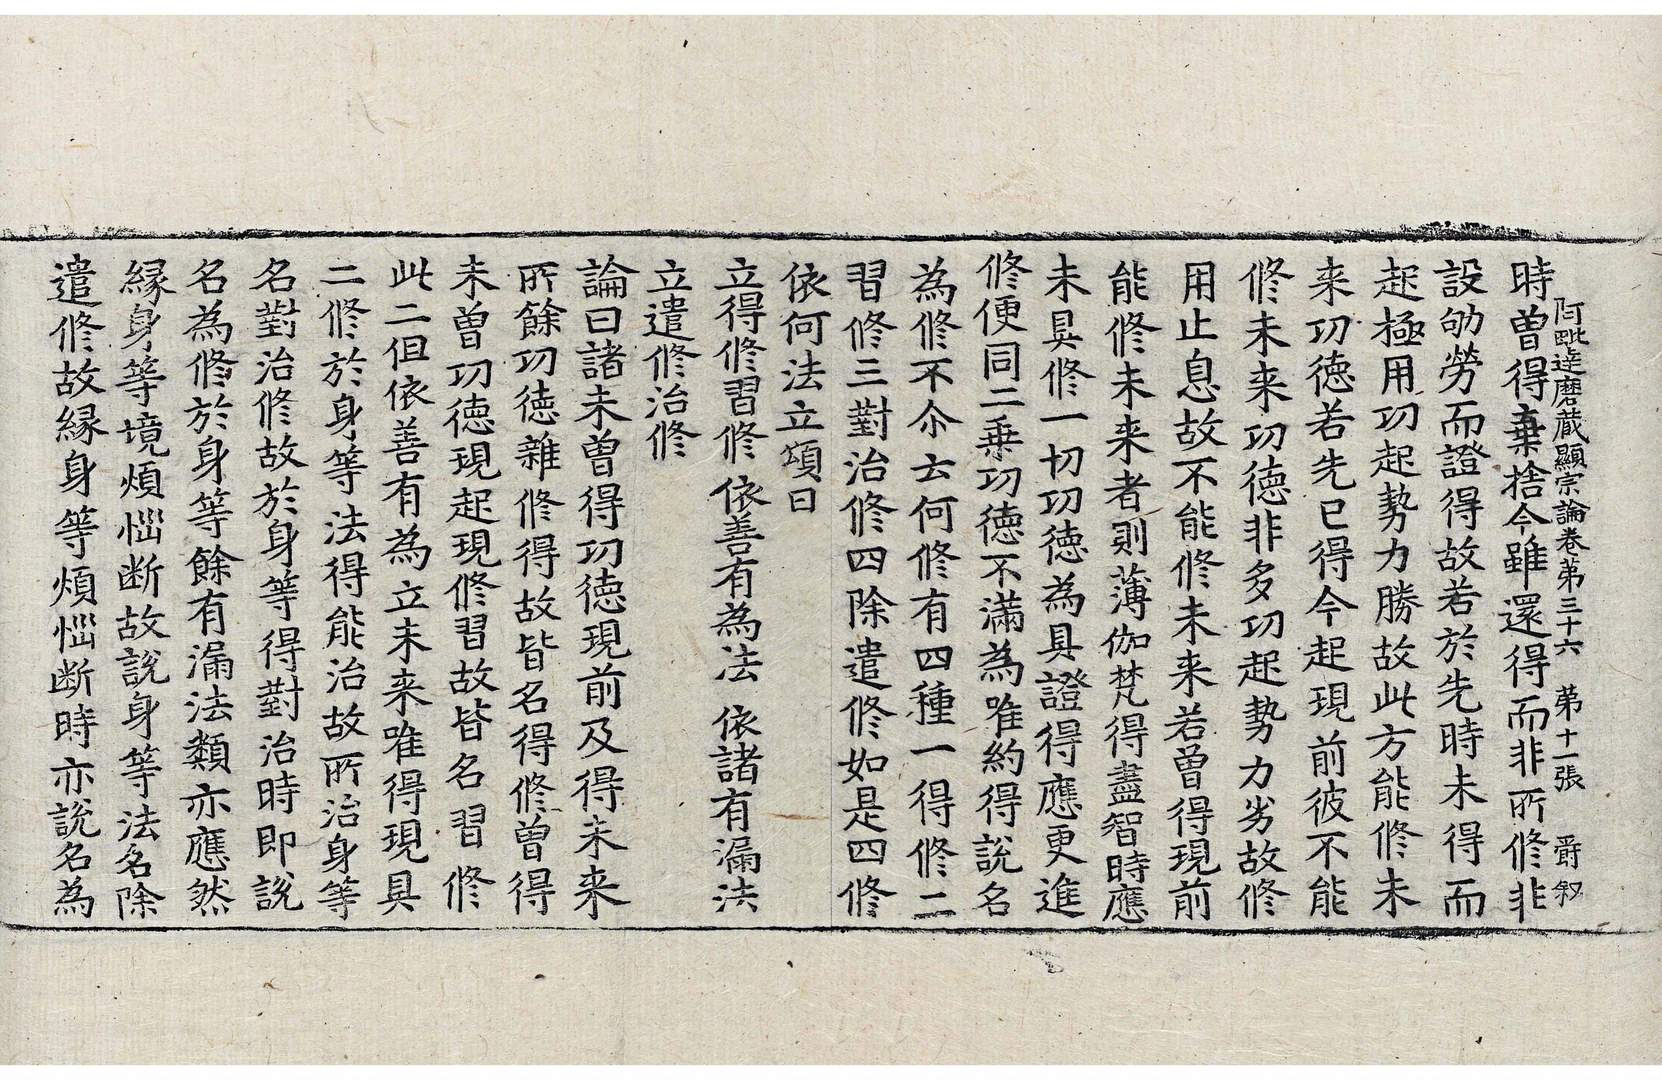 阿毗達磨蔵顯宗論卷第三十六　第十一張　爵
時曽得棄捨今雖還得而非所修非
設劬勞而證得故若於先時未得而
起極用功起勢力勝故此方能修未
来功徳若先已得今起現前彼不能
修未来功徳非多功起勢力劣故修
用止息故不能修未来若曽得現前
能修未来者則薄伽梵得盡智時應
未具修一切功徳為具證得應更進
修便同二乗功徳不滿為唯約得説名
為修不尒云何修有四種一得修二
習修三對治修四除遣修如是四修
依何法立頌曰
立得修習修　依善有為法　依諸有漏法
立遣修治修
論曰諸未曽得功徳現前及得未来
所餘功徳雜修得故皆名得修曽得
未曽功徳現起現修習故皆名習修
此二但依善有為立未来唯得現具
二修於身等法得能治故所治身等
名對治修故於身等得對治時即説
名為修於身等餘有漏法類亦應然
縁身等境煩惱断故説身等法名除
遣修故縁身等煩惱断時亦説名為